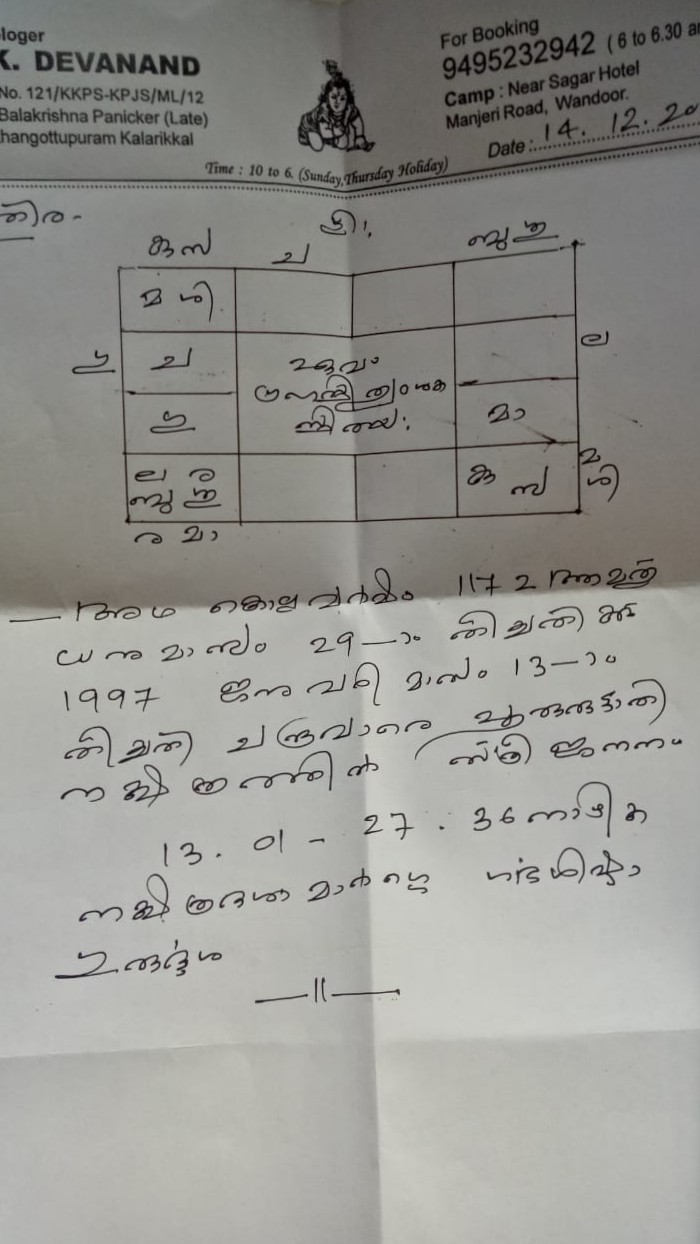 loger
K. DEVANAND
No. 121/KKPS-KPJS/ML/12
Balakrishna Panicker (Late)
hangottupuram Kalarikkal
For Booking
9495232942 ( 6 to 6.30 a
Camp : Near Sagar Hotel
Manjeri Road, Wandoor.
Date : 14. 12. 20
Time : 10 to 6. (Sunday,Thursday Holiday)
കുസ
ച
മ ശി
ച
ല
മാ
ല ര
കു സ
മ
ശി
ര മാ
അഥ കൊല്ലവർഷം 1172
ധനുമാസം 29-ാം തിയ്യതിക്ക്
1997 ജനുവരി മാസം 13-ാം
തിയ്യതി ചന്ദ്രവാരെ പൂരുരുട്ടാതി
നക്ഷത്രത്തിൽ സ്ത്രീ ജനനം
13. 01 - 27. 36 നാഴിക
നക്ഷത്രദശാ മാർഗ്ഗെ ഗർഭശിഷ്ടം